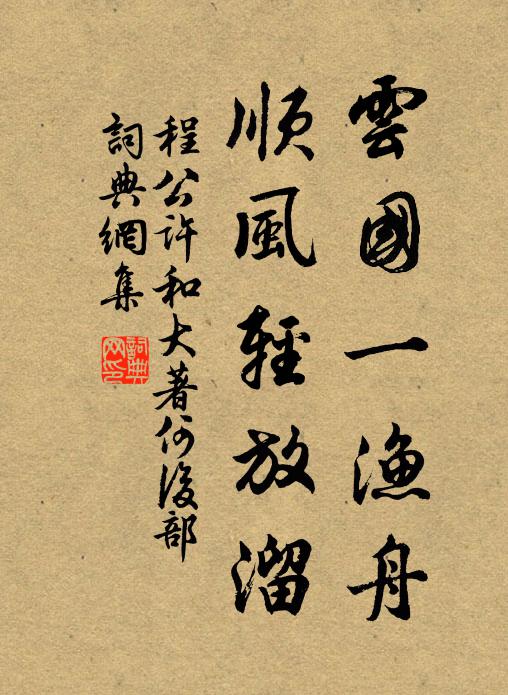 雲國一漁舟
順風輕放溜
程公許和大著何後部
詞典網集
詞典網印